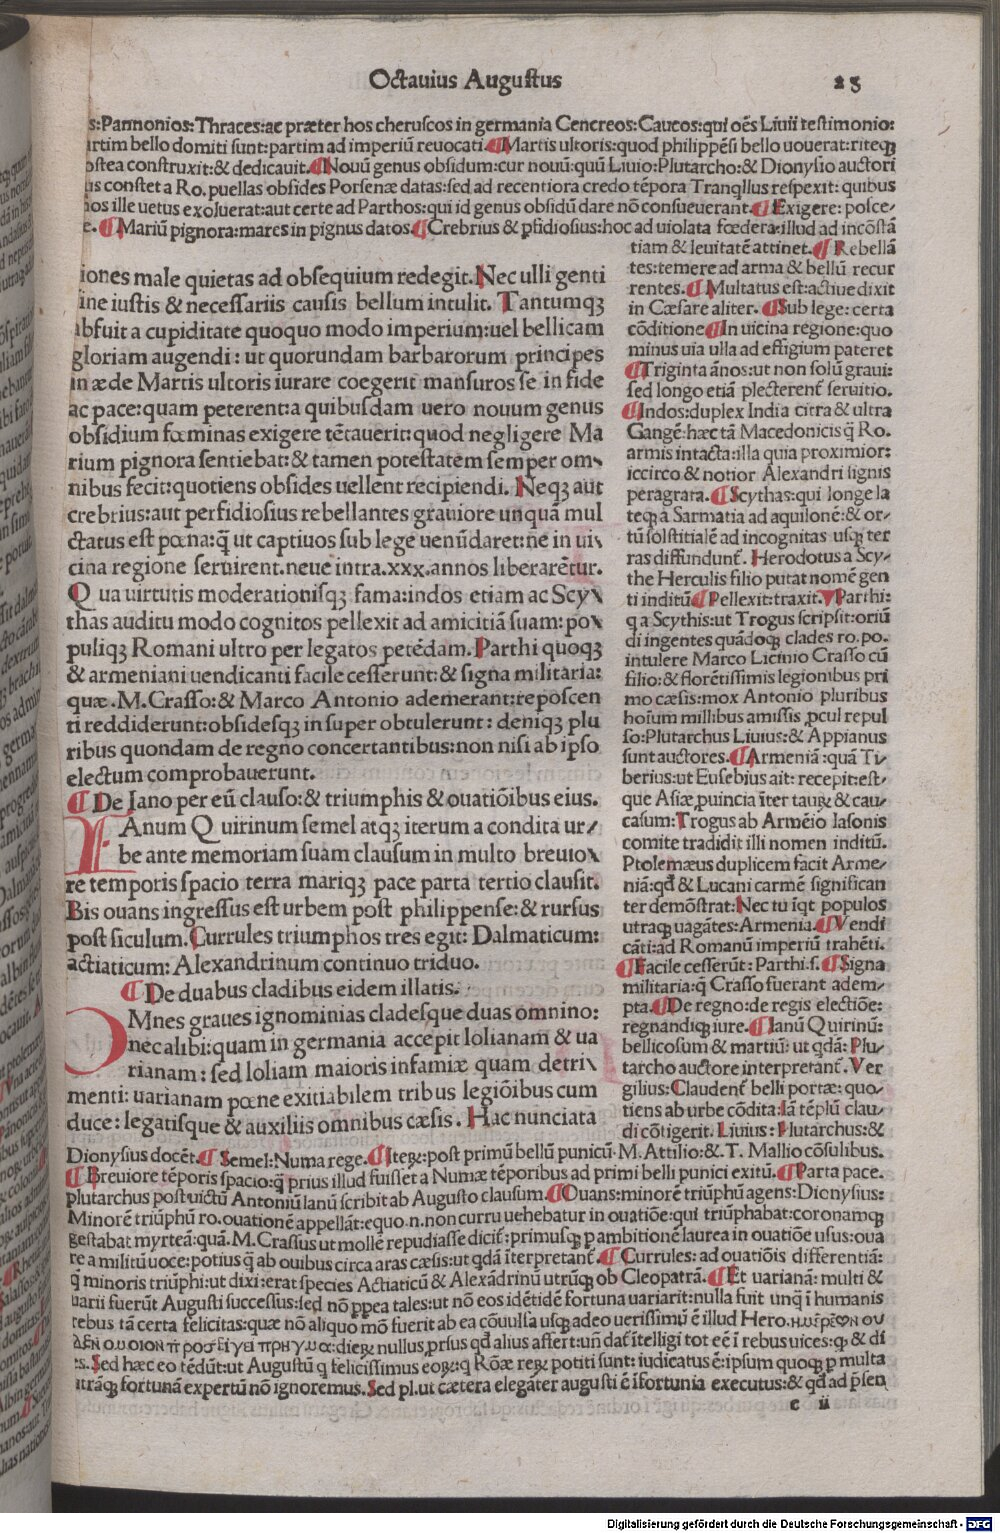 Octauius Augustus 25
s:Pannonios:Thraces:ac præter hos cheruscos in germania Cencreos:Caucos:qui oēs Liuii testimonio:
artim bello domiti sunt:partim ad imperiū reuocati. ¶Martis ultoris:quod philippēsi bello uouerat:riteqꝫ
ostea construxit:& dedicauit. ¶Nouū genus obsidum:cur nouū:quū Liuio:Plutarcho:& Dionysio auctori
us constet a Ro. puellas obsides Porsenæ datas:sed ad recentiora credo tēpora Tranqllus respexit: quibus
nos ille uetus exoluerat:aut certe ad Parthos:qui id genus obsidū dare nō consueuerant. ¶Exigere: posce-
e. ¶Mariū pignora:mares in pignus datos. ¶Crebrius & pfidiosius:hoc ad uiolata fœdera:illud ad incōstā
iones male quietas ad obsequium redegit. Nec ulli genti
sine iustis & necessariis causis bellum intulit. Tantumqꝫ
abfuit a cupiditate quoquo modo imperium:uel bellicam
gloriam augendi: ut quorundam barbarorum principes
in æde Martis ultoris iurare coegerit mansuros se in fide
ac pace:quam peterent:a quibusdam uero nouum genus
obsidium fœminas exigere tētauerit:quod negligere Ma
rium pignora sentiebat:& tamen potestatem semper om-
nibus fecit:quotiens obsides uellent recipiendi. Neqꝫ aut
crebrius:aut perfidiosius rebellantes grauiore unquā mul
ctatus est pœna:q̄ ut captiuos sub lege uenūdaret:ne in ui-
cina regione seruirent.neue intra.xxx.annos liberarētur.
Qua uirtutis moderationisqꝫ fama:indos etiam ac Scy-
thas auditu modo cognitos pellexit ad amicitiā suam: po-
puliqꝫ Romani ultro per legatos petēdam. Parthi quoqꝫ
& armeniani uendicanti facile cesserunt:& signa militaria:
quæ .M.Crasso:& Marco Antonio ademerant:reposcen
ti reddiderunt:obsidesqꝫ in super obtulerunt: deniqꝫ plu
ribus quondam de regno concertantibus:non nisi ab ipso
electum comprobauerunt.
¶De Iano per eū clauso:& triumphis & ouatiōibus eius.
IAnum Quirinum semel atqꝫ iterum a condita ur-
be ante memoriam suam clausum in multo breuio-
re temporis spacio terra mariqꝫ pace parta tertio clausit.
Bis ouans ingressus est urbem post philippense:& rursus
post siculum. Currules triumphos tres egit: Dalmaticum:
actiaticum: Alexandrinum continuo triduo.
¶De duabus cladibus eidem illatis.
OMnes graues ignominias cladesque duas omnino:
nec alibi:quam in germania accepit lolianam & ua
rianam: sed loliam maioris infamiæ quam detri-
menti: uarianam pœne exitiabilem tribus legiōibus cum
duce: legatisque & auxiliis omnibus cæsis. Hac nunciata
tiam & leuitatē attinet. ¶Rebellā
tes:temere ad arma & bellū recur
rentes. ¶Multatus est:actiue dixit
in Cæsare aliter. ¶Sub lege: certa
cōditione ¶In uicina regione:quo
minus uia ulla ad effigium pateret
¶Triginta ānos:ut non solū graui:
sed longo etiā plecterent̄ seruitio.
¶Indos:duplex India citra & ultra
Gangē:hæc tā Macedonicis q̄ Ro.
armis intacta:illa quia proximior:
iccirco & notior Alexandri signis
peragrata. ¶Scythas:qui longe la
teqꝫ a Sarmatia ad aquilonē:& or-
tū solstitialē ad incognitas usqꝫ ter
ras diffundunt̄. Herodotus a Scy-
the Herculis filio putat nomē gen
ti inditū ¶Pellexit:traxit. Parthi:
q a Scythis:ut Trogus scripsit:oriū
di ingentes quādoqꝫ clades ro. po.
intulere Marco Licinio Crasso cū
filio:& florētissimis legionibus pri
mo cæsis:mox Antonio pluribus
hoīum millibus amissis ꝓcul repul
so:Plutarchus Liuius:& Appianus
sunt auctores. ¶Armeniā :quā Ti-
berius:ut Eusebius ait: recepit:est-
que Asiæ ꝓuincia īter taurꝫ & cau-
casum:Trogus ab Armēio Iasonis
comite tradidit illi nomen inditū.
Ptolemæus duplicem facit Arme-
niā:qđ & Lucani carmē significan
ter demōstrat:Nec tu īqt populos
utraqꝫ uagātes:Armenia. ¶Vendi
cāti:ad Romanū imperiū trahēti.
¶Facile cesserūt: Parthi.s. ¶Signa
militaria:q Crasso fuerant adem-
pta. ¶De regno:de regis electiōe:
regnandiqꝫ iure. ¶Ianū Quirinū:
bellicosum & martiū: ut qdā: Plu-
tarcho auctore interpretant̄. Ver
gilius:Claudent̄ belli portæ: quo-
tiens ab urbe cōdita:Iā tēplū clau-
di cōtigerit. Liuius: Plutarchus:&
Dionysius docēt. ¶Semel:Numa rege. ¶Iterꝫ:post primū bellū punicū M. Attilio:& T. Mallio cōsulibus.
¶Breuiore tēporis spacio:q prius illud fuisset a Numæ tēporibus ad primi belli punici exitū. ¶Parta pace.
plutarchus post uictū Antoniū Ianū scribit ab Augusto clausum. ¶Ouans:minorē triūphū agens:Dionysius:
Minorē triūphū ro.ouationē appellāt:equo.n.non curru uehebatur in ouatiōe:qui triūphabat:coronamqꝫ
gestabat myrteā:quā.M.Crassus ut mollē repudiasse dicit̄:primusqꝫ p ambitionē laurea in ouatiōe usus:oua
re a militū uoce:potius q̄ ab ouibus circa aras cæsis:ut qdā īterpretant̄. ¶Currules: ad ouatiōis differentiā:
q̄ minoris triūphi:ut dixi:erat species Actiaticū & Alexādrinū utrūqꝫ ob Cleopatrā. ¶Et uarianā: multi &
uarii fuerūt Augusti successus:sed nō ꝓpea tales:ut nō eos idētidē fortuna uariarit:nulla fuit unq̄ ī humanis
rebus tā certa felicitas:quæ nō aliquo mō fuerit ab ea cōuulsa usqꝫ adeo uerissimū ē illud Hero.
dierꝫ nullus prius qđ alius affert:un̄ dat̄ ītelligi tot eē ī rebus uices:qꝫ & di
es. Sed hæc eo tēdūt:ut Augustū q felicissimus eorꝫ:q Rōæ rerꝫ potiti sunt: iudicatus ē:ipsum quoqꝫ p multa
utrāqꝫ fortunā expertū nō ignoremus. Sed pl.ut cætera elegāter augusti ē īfortunia executus:& qđ ad p̄sen
c ii
Digitalisierung gefördert durch die Deutsche Forschungsgemeinschaft - DFG